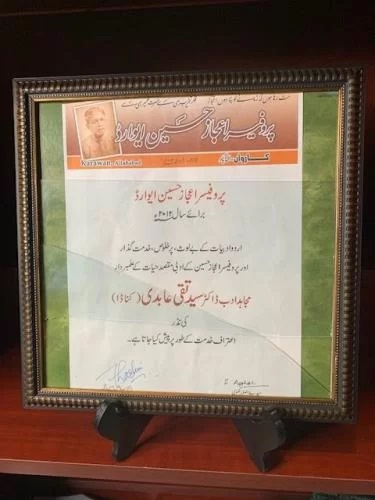 پروفیسر اعجاز حسین ایوارڈ
Karawan, Allahabad
کارواں
پروفیسر اعجاز حسین ایوارڈ
برائے سال ۲۰۱۲ء
اردو ادبیات کے بے لوث، پر خلوص، خدمت گذار
اور پروفیسر اعجاز حسین کے ادبی مقصد حیات کے علمبردار
مجاہد ادب ڈاکٹر سید تقی عابدی (کناڈا)
کی نذر
اعتراف خدمت کے طور پر پیش کیا جاتا ہے۔